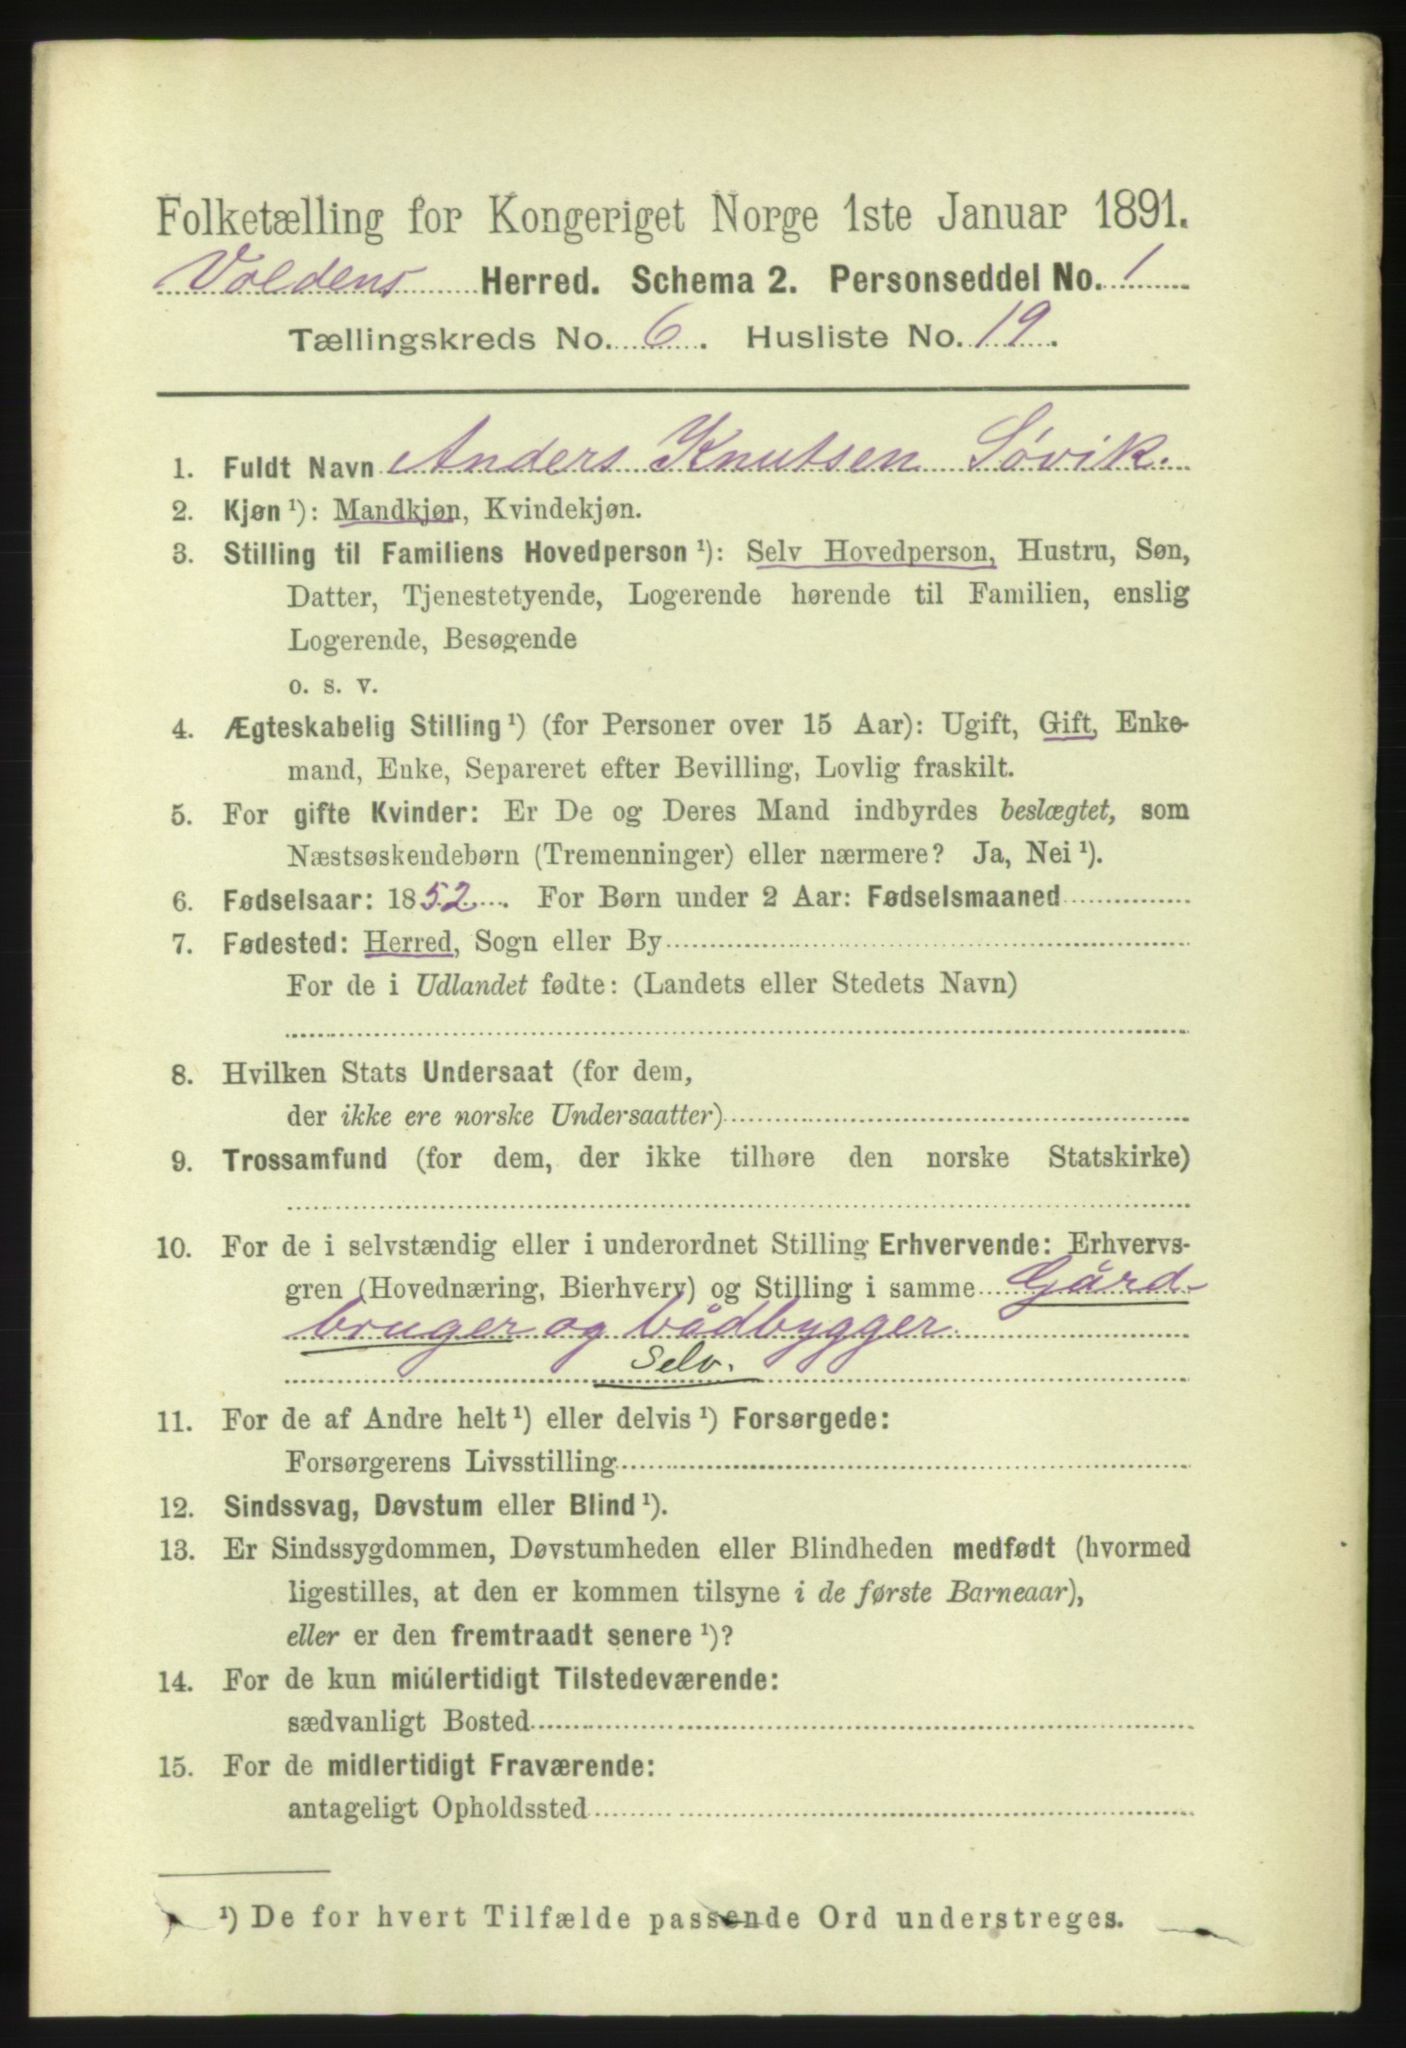 Folketælling for Kongeriget Norge 1ste Januar 1891.
Voldens Herred. Schema 2. Personseddel No. 1
Tællingskreds No. 6. Husliste No. 19.
1. Fuldt Navn Anders Knutsen Søvik.
2. Kjøn ¹): Mandkjøn, Kvindekjøn.
3. Stilling til Familiens Hovedperson ¹): Selv Hovedperson, Hustru, Søn,
Datter, Tjenestetyende, Logerende hørende til Familien, enslig
Logerende, Besøgende
o. s. v.
4. Ægteskabelig Stilling ¹) (for Personer over 15 Aar): Ugift, Gift, Enke-
mand, Enke, Separeret efter Bevilling, Lovlig fraskilt.
5. For gifte Kvinder: Er De og Deres Mand indbyrdes beslægtet, som
Næstsøskendebørn (Tremenninger) eller nærmere? Ja, Nei ¹).
6. Fødselsaar: 1852. For Børn under 2 Aar: Fødselsmaaned
7. Fødested: Herred, Sogn eller By
For de i Udlandet fødte: (Landets eller Stedets Navn)
8. Hvilken Stats Undersaat (for dem,
der ikke ere norske Undersaatter)
9. Trossamfund (for dem, der ikke tilhøre den norske Statskirke)
10. For de i selvstændig eller i underordnet Stilling Erhvervende: Erhvervs-
gren (Hovednæring, Bierhverv) og Stilling i samme Gård-
bruger og bådbygger.
Selv.
11. For de af Andre helt ¹) eller delvis ¹) Forsørgede:
Forsørgerens Livsstilling
12. Sindssvag, Døvstum eller Blind ¹).
13. Er Sindssygdommen, Døvstumheden eller Blindheden medfødt (hvormed
ligestilles, at den er kommen tilsyne i de første Barneaar),
eller er den fremtraadt senere ¹)?
14. For de kun midlertidigt Tilstedeværende:
sædvanligt Bosted
15. For de midlertidigt Fraværende:
antageligt Opholdssted
¹) De for hvert Tilfælde passende Ord understreges.